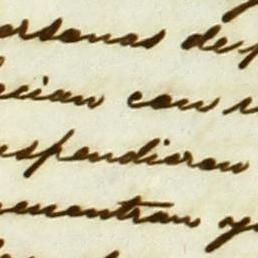 ersonas de
ecian con
uspendieron
ncuentran